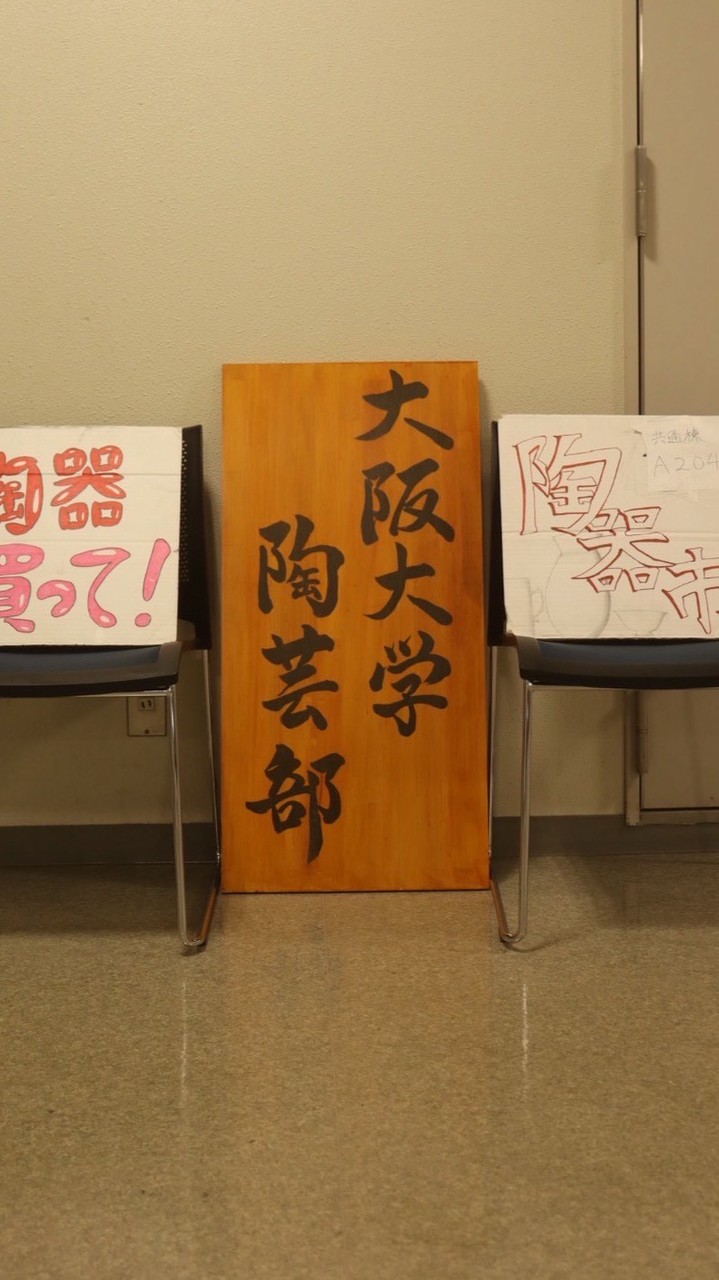 陶器
買って!
大阪大学
陶芸部
共通棟
A204
陶器市